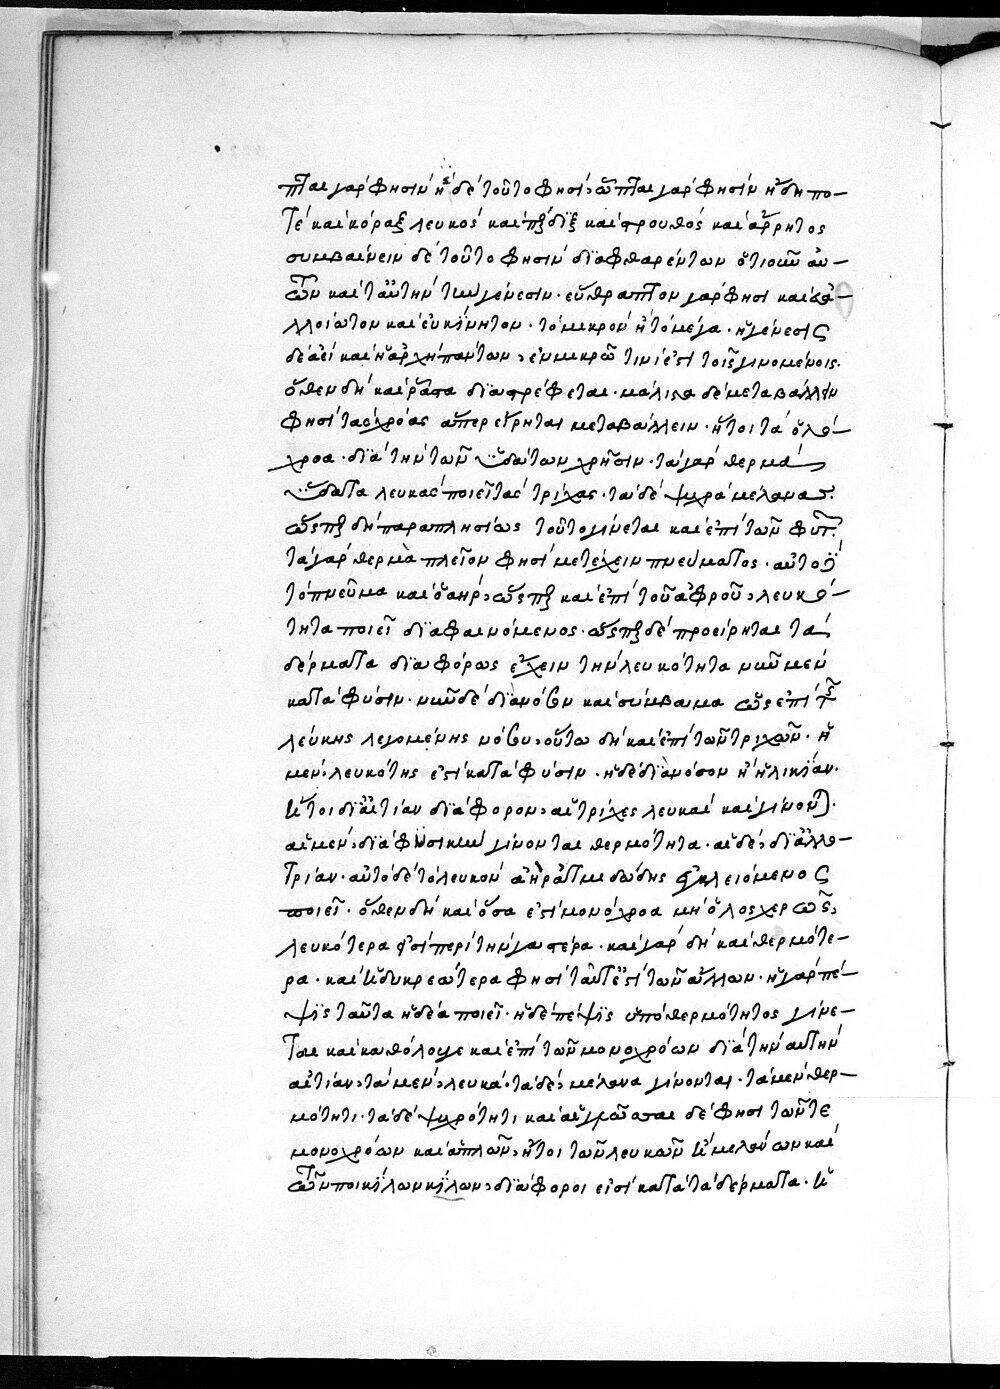 πται γὰρ φησὶν ἢ δὲ τοῦτο φησὶ, ὦπται γὰρ φησὶν ἤδη πο-
τὲ καὶ κόραξ λευκὸς καὶ πέρδιξ καὶ στρουθὸς καὶ ἄρρητος
συμβαίνειν δὲ τοῦτο φησὶν διαφθαρέντων ὁτιοῦν αὐ-
τῶν κατ' αὐτὴν τὴν γένεσιν. εὔθραπτον γὰρ φησὶ καὶ εὐα-
λλοίωτον καὶ εὐκίνητον. τὸ μικρὸν ἢ τὸ μέγα. ἡ γένεσις
δὲ ἀεὶ καὶ ἡ ἀρχὴ πάντων, ἐν μικρῶ τινί ἐστι τοῖς γινομένοις.
ὅθεν δὴ καὶ ῥᾶστα διαστρέφεται. μάλιστα δὲ μεταβάλλειν
φησὶ τὰς χρόας ἅπερ εἴρηται μεταβάλλειν. ἤτοι τὰ ὁλό-
χροα. διὰ τὴν τῶν ὑδάτων χρῆσιν. τὰ γὰρ θερμὰ
ὕδατα λευκὰς ποιεῖ τὰς τρίχας. τὰ δὲ ψυχρὰ μελαίνας.
ὥσπερ δὴ παραπλησίως τοῦτο γίνεται καὶ ἐπὶ τῶν φυτῶν.
τὰ γὰρ θερμὰ πλεῖον φησὶ μετέχειν πνεύματος. αὐτὸ δὲ
τὸ πνεῦμα καὶ ὁ ἀὴρ, ὥσπερ καὶ ἐπὶ τοῦ ἀφροῦ, λευκό-
τητα ποιεῖ διαφαινόμενος. ὥσπερ δὲ προείρηται τὰ
δέρματα διαφόρως ἔχειν τὴν λευκότητα νῦν μὲν
κατὰ φύσιν. νῦν δὲ διὰ νόσον καὶ σύμβαμα ὡς ἐπὶ τῆς
λεύκης λεγομένης νόσου, οὕτω δὴ καὶ ἐπὶ τῶν τριχῶν. ἡ
μὲν, λευκότης ἐστὶ κατὰ φύσιν. ἡ δὲ διὰ νόσον ἢ ἡλικίαν.
ἤτοι δι' αἰτίαν διάφορον, αἱ τρίχες λευκαὶ καὶ γίνονται.
αἱ μὲν, διὰ φυσικὴν γίνονται θερμότητα. αἱ δὲ, δι' ἀλλο-
τρίαν. αὐτὸ δὲ τὸ λευκὸν ἀὴρ ἀτμιδώδης ἐγκλειόμενος
ποιεῖ. ὅθεν δὴ καὶ ὅσα ἐστὶ μονόχροα μὴ ὁλοσχερῶς,
λευκότερά ἐστι περὶ τὴν γαστέρα. καὶ γὰρ δὴ καὶ θερμότε-
ρα. καὶ ἡδυκρεώτερα φησὶ ταῦτ' ἐστὶ τῶν ἄλλων. ἡ γὰρ πέ-
ψις ταῦτα ἡδέα ποιεῖ. ἡ δὲ πέψις ὑπὸ θερμότητος γίνε-
ται καὶ καθόλου γε καὶ ἐπὶ τῶν μονοχρόων διὰ τὴν αὐτὴν
αἰτίαν, τὰ μὲν, λευκά. τὰ δὲ, μέλανα γίνονται. τὰ μὲν θερ-
μότητι. τὰ δὲ ψυχρότητι καὶ αἱ γλῶσσαι δὲ φησὶ τῶν τε
μονοχρόων καὶ ἁπλῶν, ἤτοι τῶν λευκῶν ἢ μελάνων καὶ
τῶν ποικίλων κίλων, διάφοροι εἰσὶ κατὰ τὰ δέρματα. ἢ